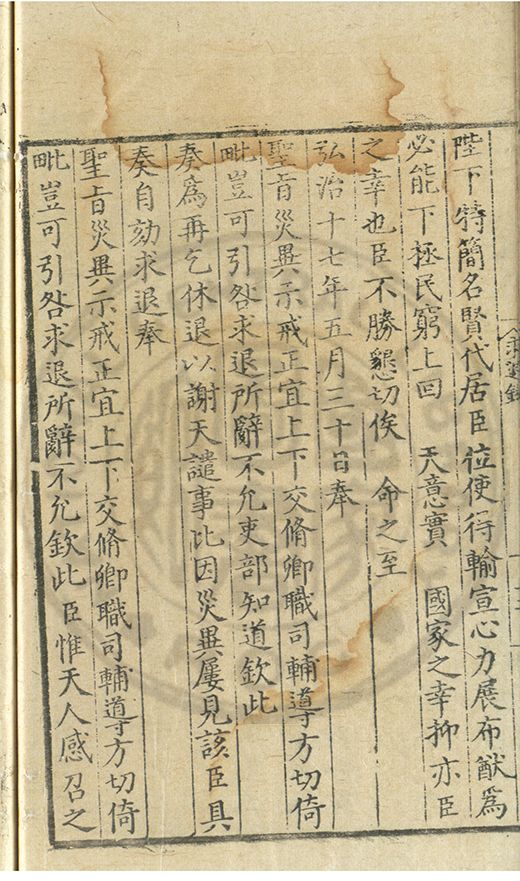 陛下特簡名賢代居臣位使得輸宣心力展布猷爲
必能下拯民窮上回　天意實　國家之幸抑亦臣
之幸也臣不勝懇切俟　命之至
弘治十七年五月三十日奉
聖旨災異示戒正宜上下交脩卿職司輔導方切倚
毗豈可引咎求退所辭不允吏部知道欽此
奏爲再乞休退以謝天譴事比因災異屢見該臣具
奏自劾求退奉
聖旨災異示戒正宜上下交脩卿職司輔導方切倚
毗豈可引咎求退所辭不允欽此臣惟天人感召之